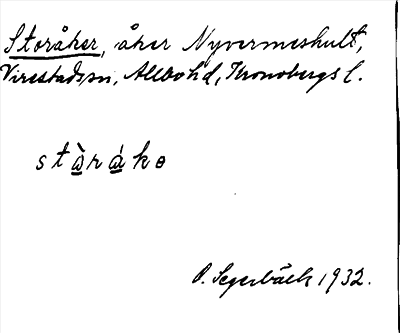 Storåker, åker Nyvermeshult,
Virestads sn, Allbo hd, Kronobergs l.
stὰrákɵ
P. Segerbäck 1932.